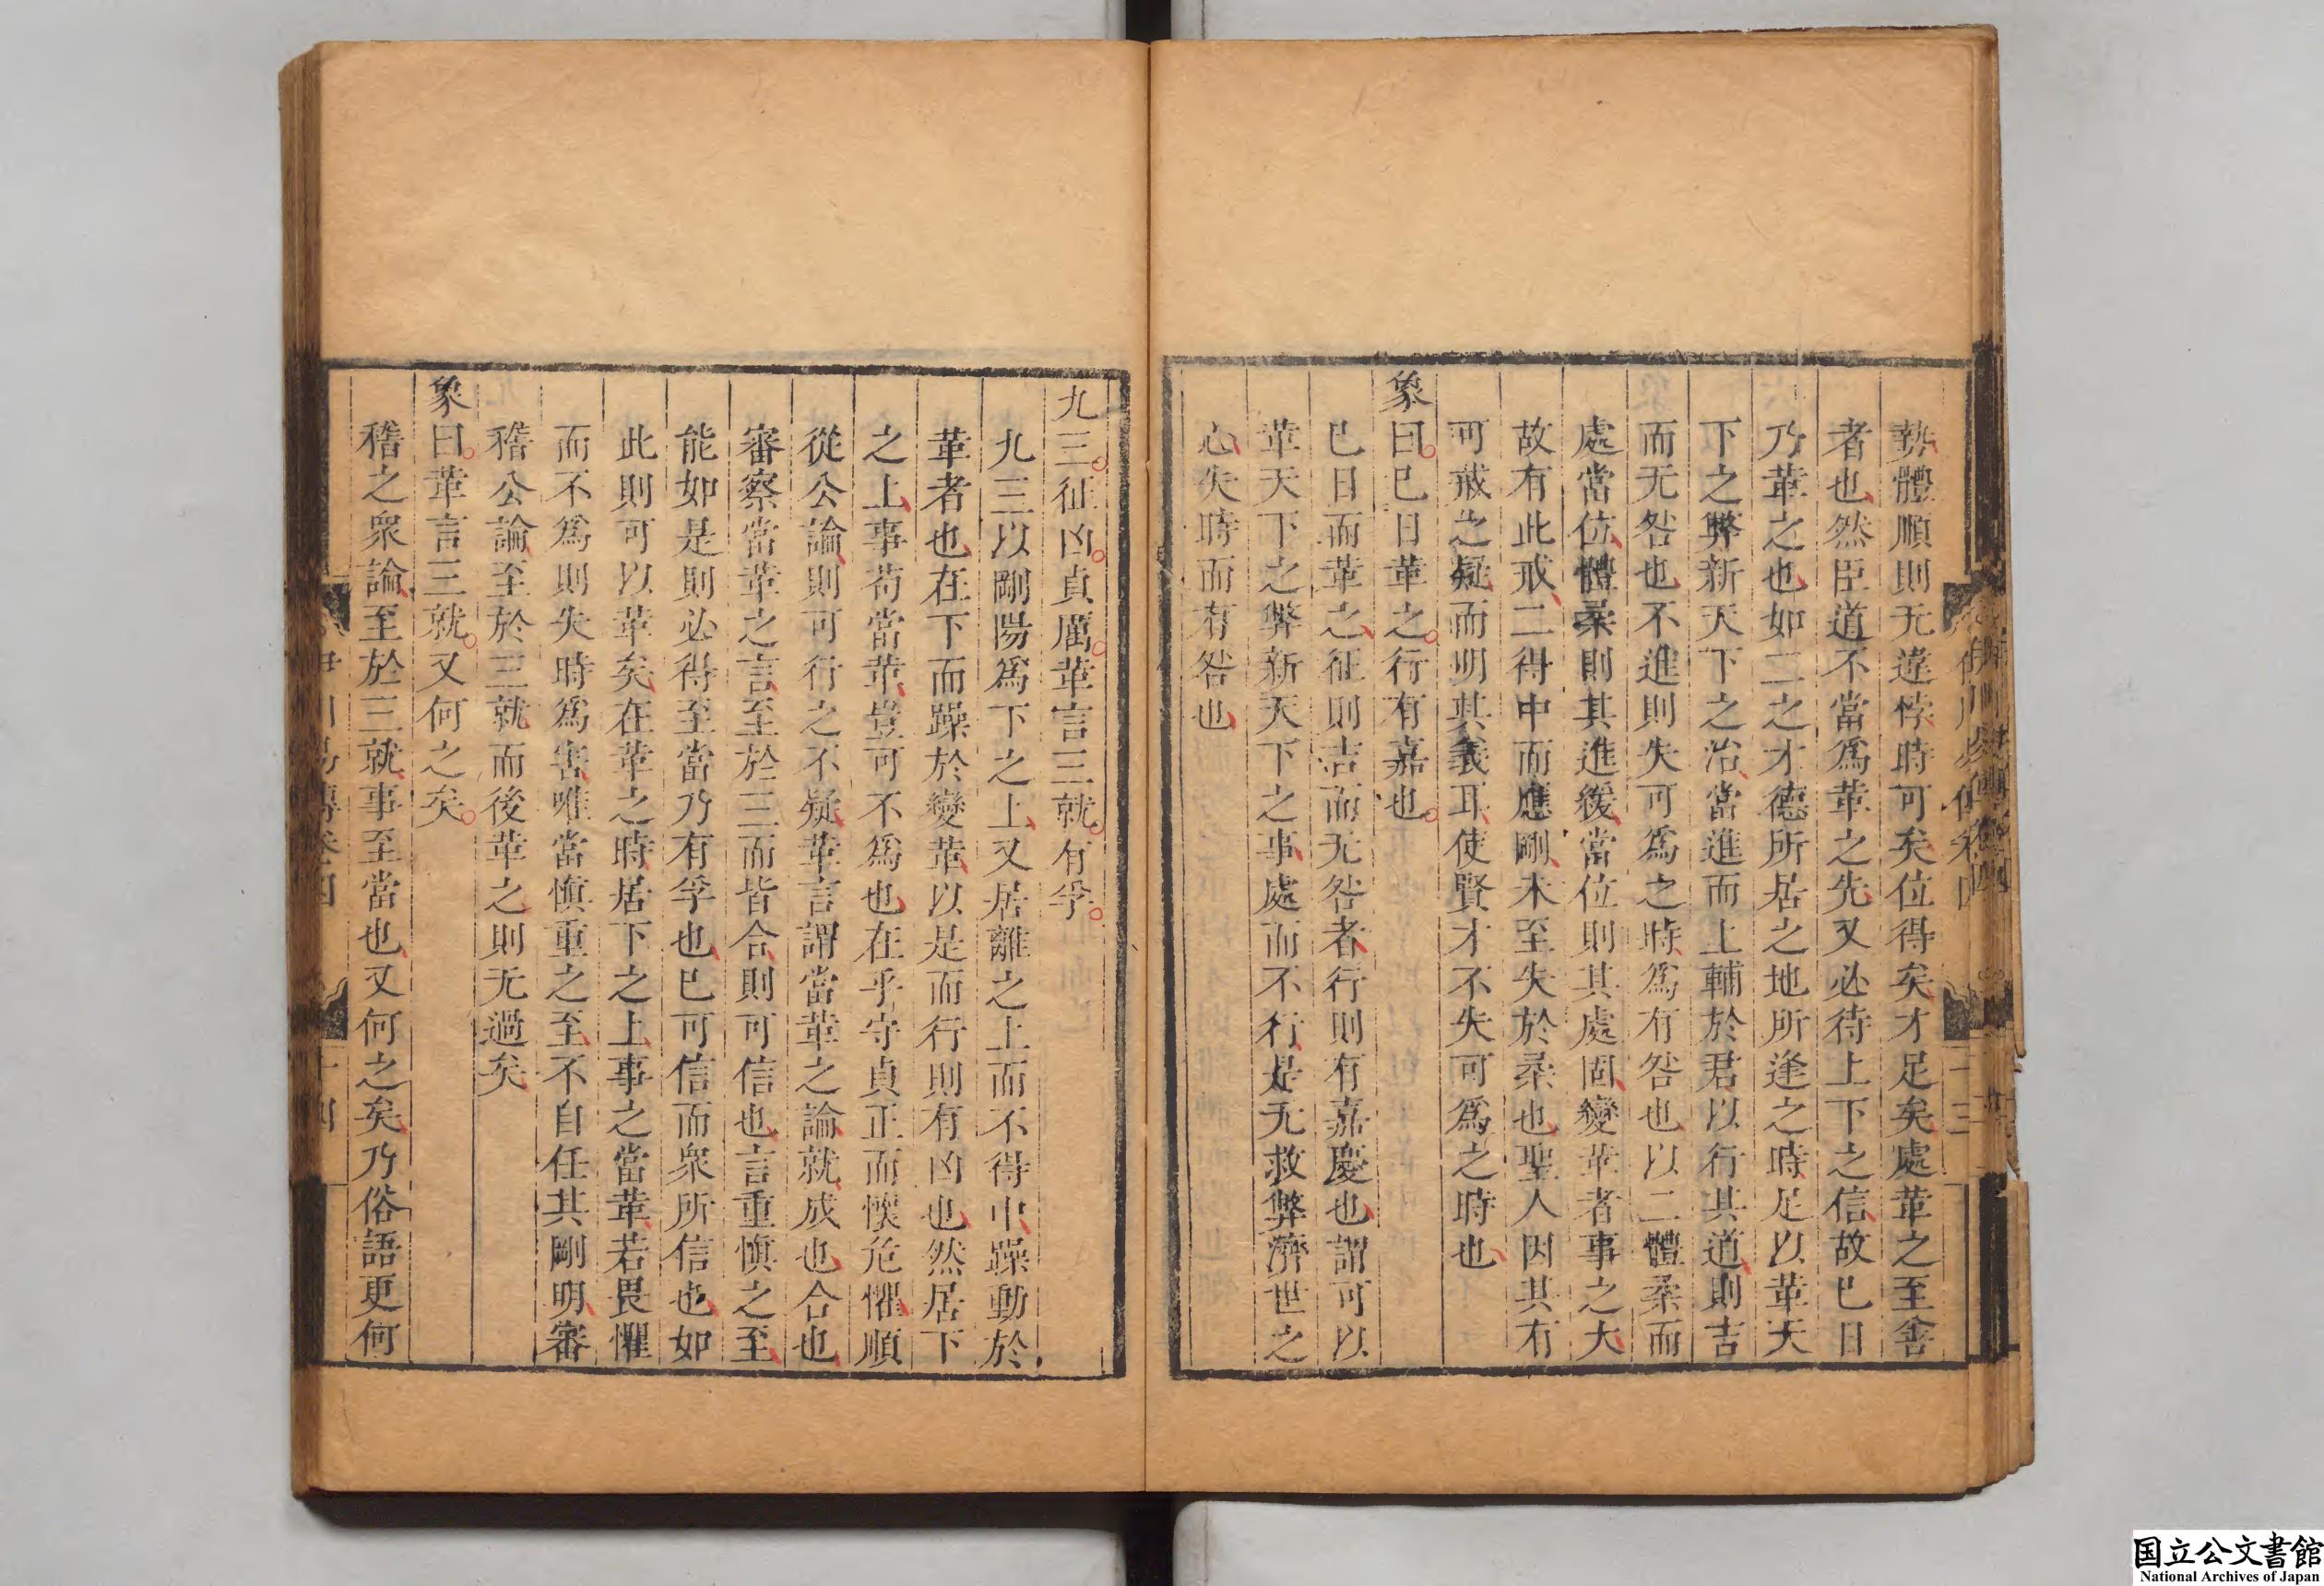 埶體順則无違悖時可矣位得矣才足矣處革之至善
者也然臣道不當爲革之先又必待上下之信故巳日
乃革之也如二之才德所居之地所逢之時足以革天
下之弊新天下之治當進而上輔於君以行其道則吉
而无咎也不進則失可爲之時爲有咎也以二體柔而
處當位體柔則其進緩當位則其處固變革者事之大
故有此戒二得中而應剛未至失於柔也聖人因其有
可戒之疑而明其義耳使賢才不失可爲之時也
象曰巳日革之行有嘉也
巳日而革之征則吉而无咎者行則有嘉慶也謂可以
革天下之弊新天下之事處而不行是无救弊濟世之
心失時而有咎也
九三征凶貞厲革言三就有孚
九三以剛陽爲下之上又居離之上而不得中躁動於
革者也在下而躁於變革以是而行則有凶也然居下
之上事苟當革豈可不爲也在乎守貞正而懷危懼順
從公論則可行之不疑革言謂當革之論就成也合也
審察當革之言至於三而皆合則可信也言重慎之至
能如是則必得至當乃有孚也巳可信而衆所信也如
此則可以革矣在革之時居下之上事之當革若畏懼
而不爲則失時爲害唯當慎重之至不自任其剛明審
稽公論至於三就而後革之則无過矣
象曰革言三就又何之矣
稽之衆論至於三就事至當也又何之矣乃俗語更何
伊川易傳卷四
十四
国立公文書館
National Archives of Japan